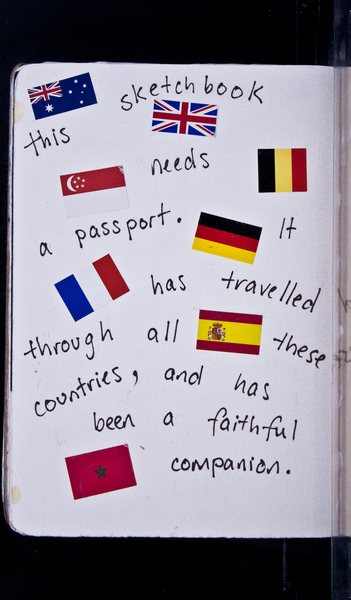 this sketchbook
needs
a passport. It
has travelled
through all these
countries, and has
been a faithful
companion.